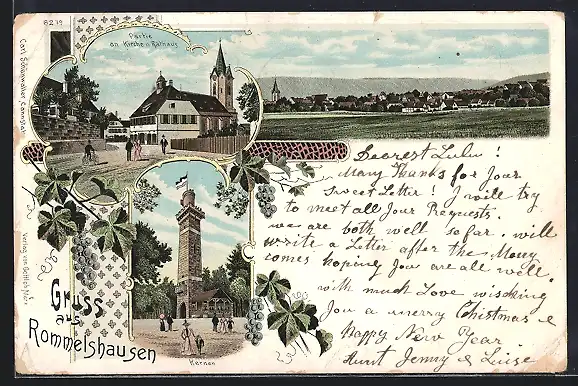 8279
Partie
an Kirche u. Rathaus
Carl Schönwalder, Cannstatt
Verlag von Gottlieb
Kernen
Gruss
aus
Rommelshausen
Dearest Lulu!
Many Thanks for Jour
Sweet Letter! I will try
to meet all Jour Requests.
we are both well so far. will
write a Letter after the Mony
comes hoping Jou are all well.
with much Love wisching
Jou a merry Christmas &
Happy New Year.
Aunt Jenny & Luise